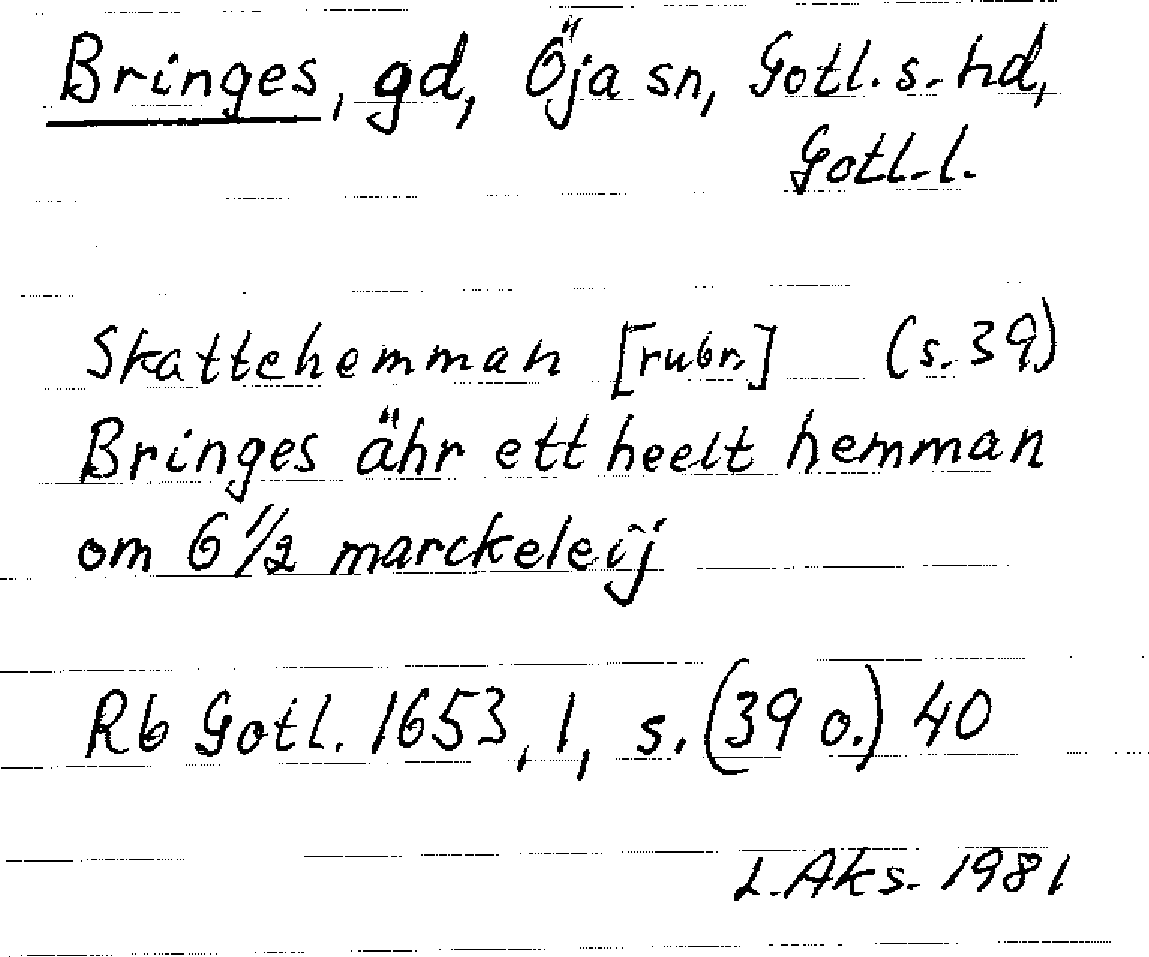 Bringes, gd, Öja sn, Gotl. s. hd,
Gotl. l.
Skattehemman [rubr.] (s. 39)
Bringes ähr ett heelt hemman
om 6 1/2 marckeleij
Rb Gotl. 1653, 1, s. (39 o.) 40
L. Aks. 1981